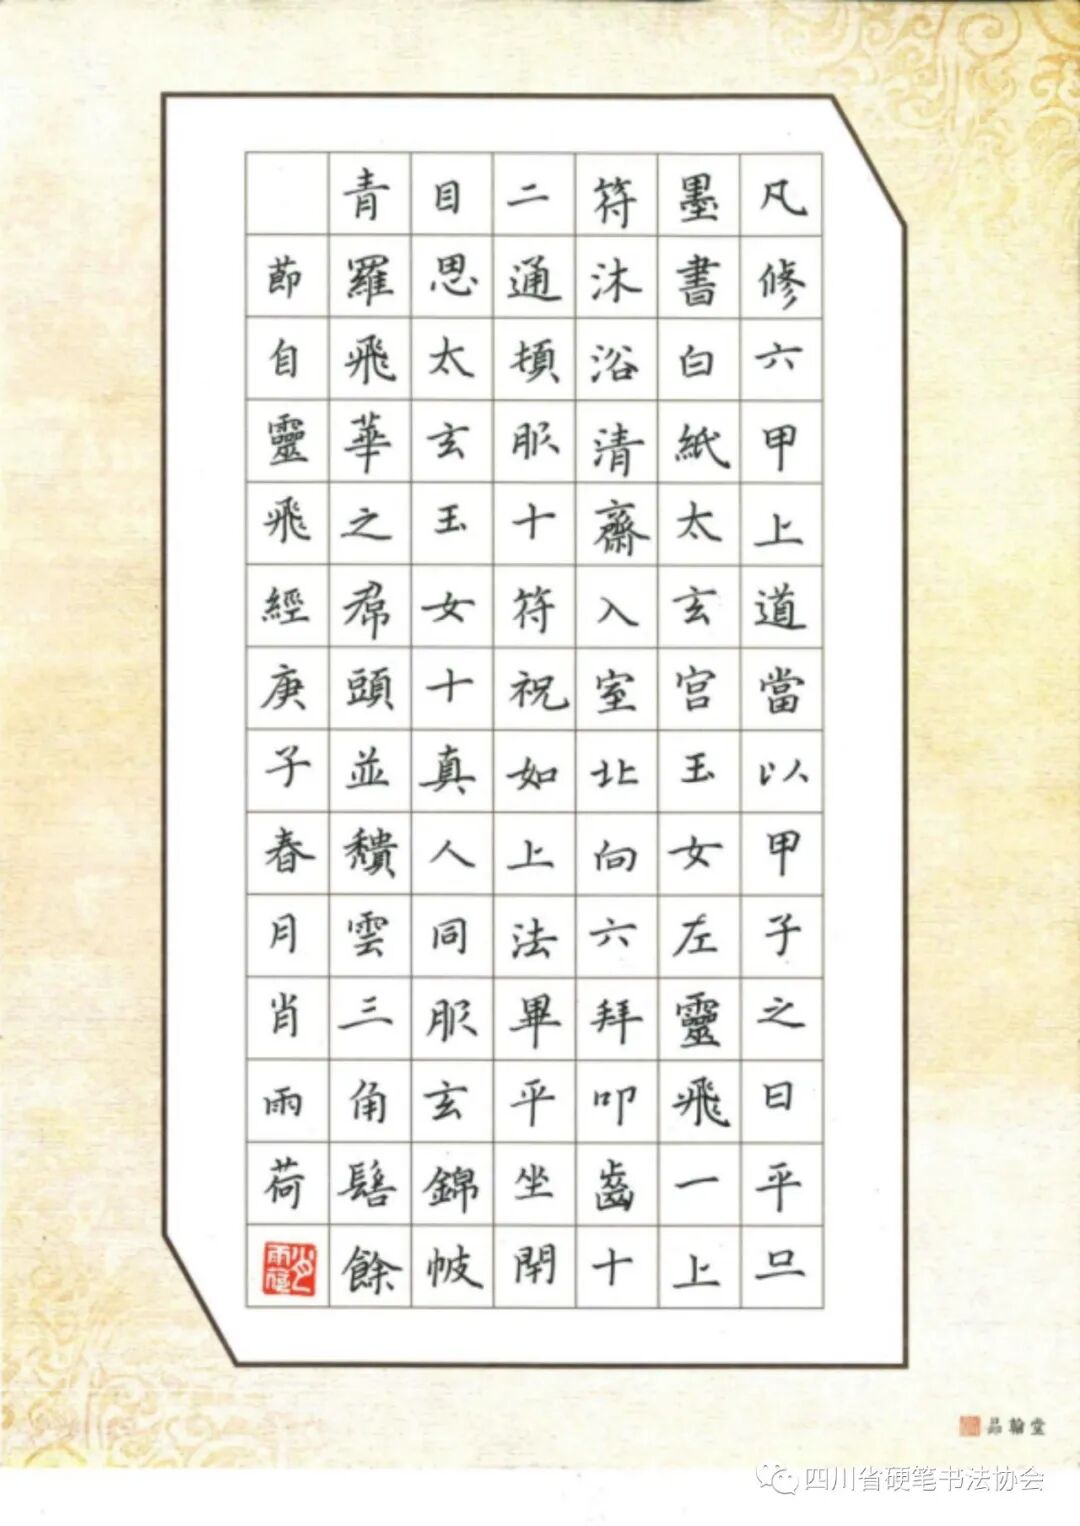 凡修六甲上道當以甲子之日平旦
墨書白紙太玄宫玉女左靈飛一上
符沐浴清齋入室北向六拜叩齒十
二通頓服十符祝如上法畢平坐閉
目思太玄玉女十真人同服玄錦帔
青羅飛華之帬頭並穨雲三角髻餘
節自靈飛經庚子春月肖雨荷
肖雨荷
品翰堂
四川省硬笔书法协会